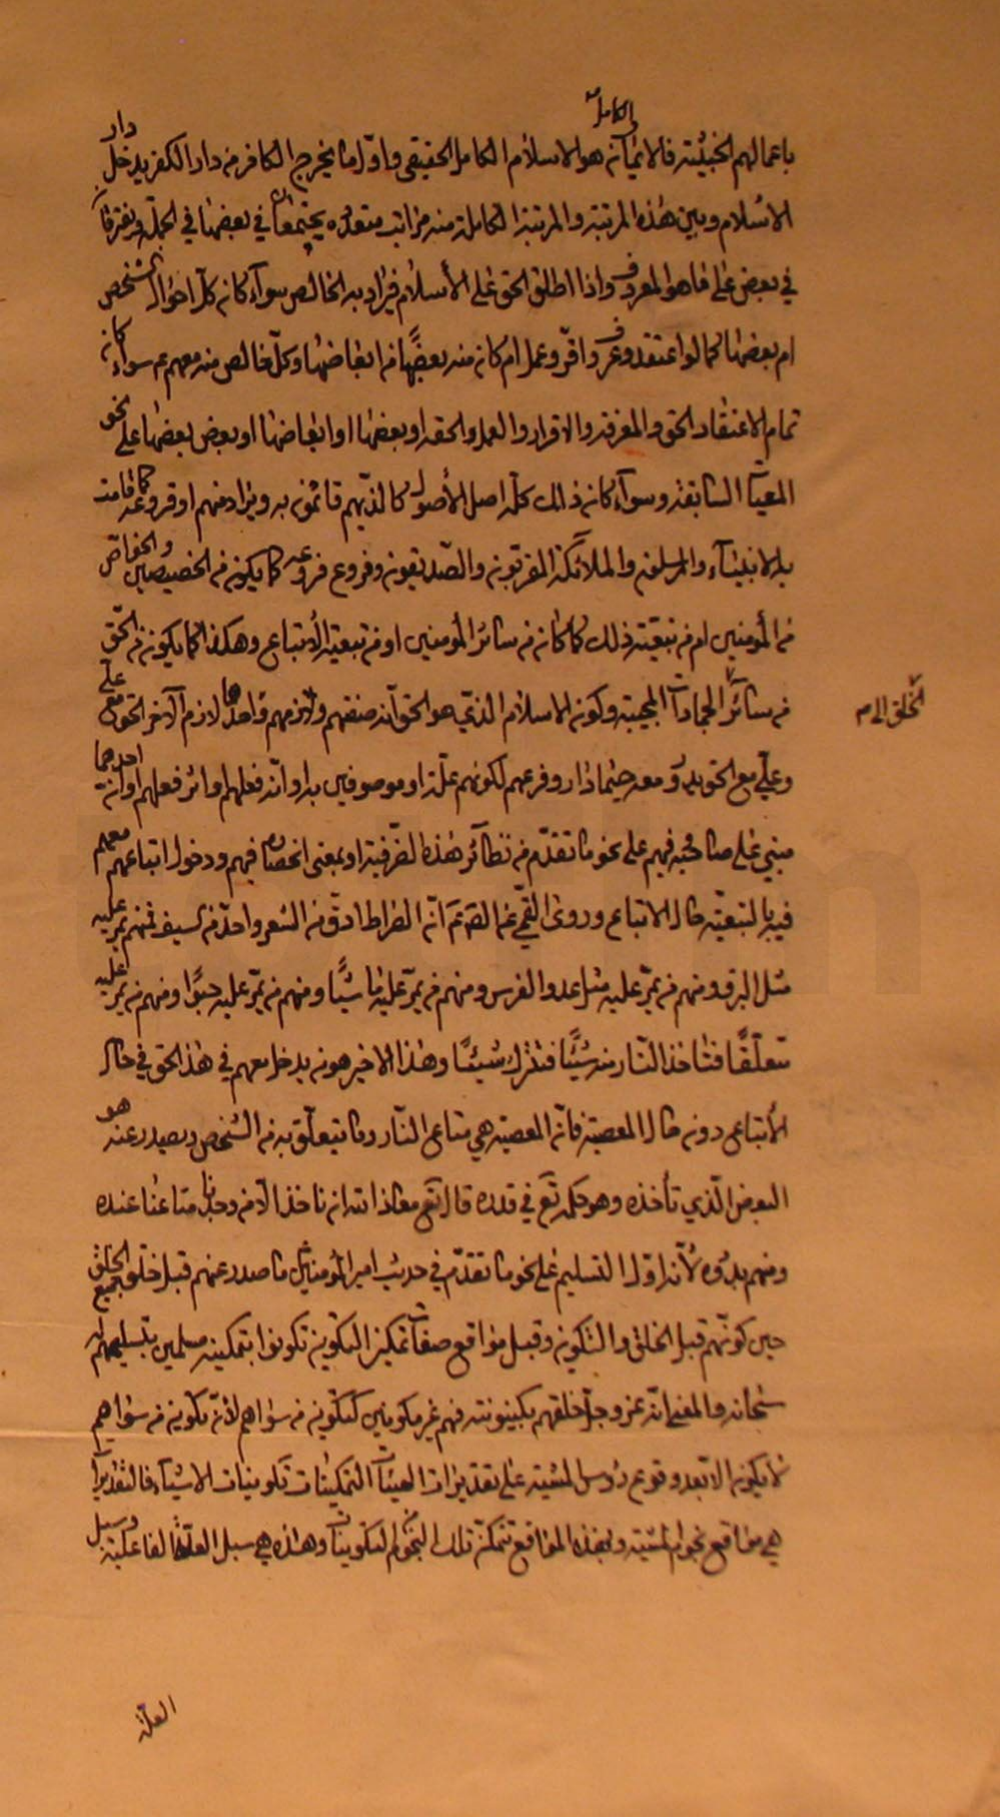 الكامل
باعمالهم الخبيثة فالايمان هو الاسلام الكامل الحقيقى واول ما يخرج الكافر من دار الكفر يدخل دار
الاسلام وبين هذه المرتبة والمرتبة الكاملة منه مراتب متعدده يجتمعان في بعضها في الجملة ويفترقان
في بعض على ما هو المعروف واذا اطلق الحق على الأسلام فيراد به الخالص سوآء كان كل احوال الشخص
ام بعضها كما لو اعتقد وعرف واقر وعمل ام كان منه بعضها من ابعاضها وكل خالص منه معهم سوآء كان
تمام الاعتقاد الحق والمعرفة والاقرار والعمل والحقه او بعضها او ابعاضها او بعض بعضها على نحو
المعيات السابقة وسوآء كان ذلك كله اصل الأصول كالذي هم قائمون به ويراد منهم او فروعه كما قامت
به الانبيآء والمرسلون والملائكة المقربون والصديقون وفروع فروعه كما يكون من الخصيصين والخواص
من المؤمنين ام من تبعية ذلك كما كان من سائر المؤمنين او من تبعية الأتباع وهكذا كما يكون من الحق
من سائر الجمادات المجيبة وكون الاسلام الذي هو الحق انه صنفهم ولازمهم واحدهما لازم الآخر الحق مع علي
الخلق الى م
وعلي مع الحق يدور معه حيثما دار وفرعهم لكونهم علته او موصوفين به او انه فعلهم او اثر فعلهم او ان احدهما
مبني على صاحبه فيهم على نحو ما تقدم من نظائر هذه الظرفية او بمعنى انحصاره فيهم ودخول اتباعهم معهم
فيه بالتبعية حال الاتباع وروى القمي عن الصادق ع ان الصراط ادق من الشعر واحد من السيف فمنهم من يمر عليه
مثل البرق ومنهم من يمر عليه مثل عدو الفرس ومنهم من يمر عليه ماشيا ومنهم من يمر عليه حبوا ومنهم من يمر عليه
متعلقا فتاخذ النار منه شيئا فتترك شيئا وهذا الاخير هو من يدخل معهم في هذا الحق في حال
الأتباع دون حال المعصية فان المعصية هي متاع النار وما يتعلق به من الشخص ويصدر عنه هو
البعض الذي تأخذه وهو حكمه تع في قدره قال تع معاذ الله ان ناخذ الا من وجدنا متاعنا عنده
ومنهم بدؤه لأنه اول التسليم على نحو ما تقدم في حديث امير المؤمنين ما صدر عنهم قبل خلق جميع الخلق
حين كونهم قبل الخلق والتكوين وقبل مواقع صفات تمكين التكوين تكونوا بتمكينه مسلمين بتسليمهم له
سبحانه والمعنى انه عز وجل خلقهم بكينونته فهم غير مكونين كتكوين من سواهم لأن تكوين من سواهم
لا يكون الا بعد وقوع رؤس المشية على تقديرات الهيئات التمكينات تكوينات الاشيآء فالتقديرات
هي مواقع نجوم المشية وبهذه المواقع تمكن تلك النجوم التكوينات وهذه هي سبل العلة الفاعلية وسبل
العلة